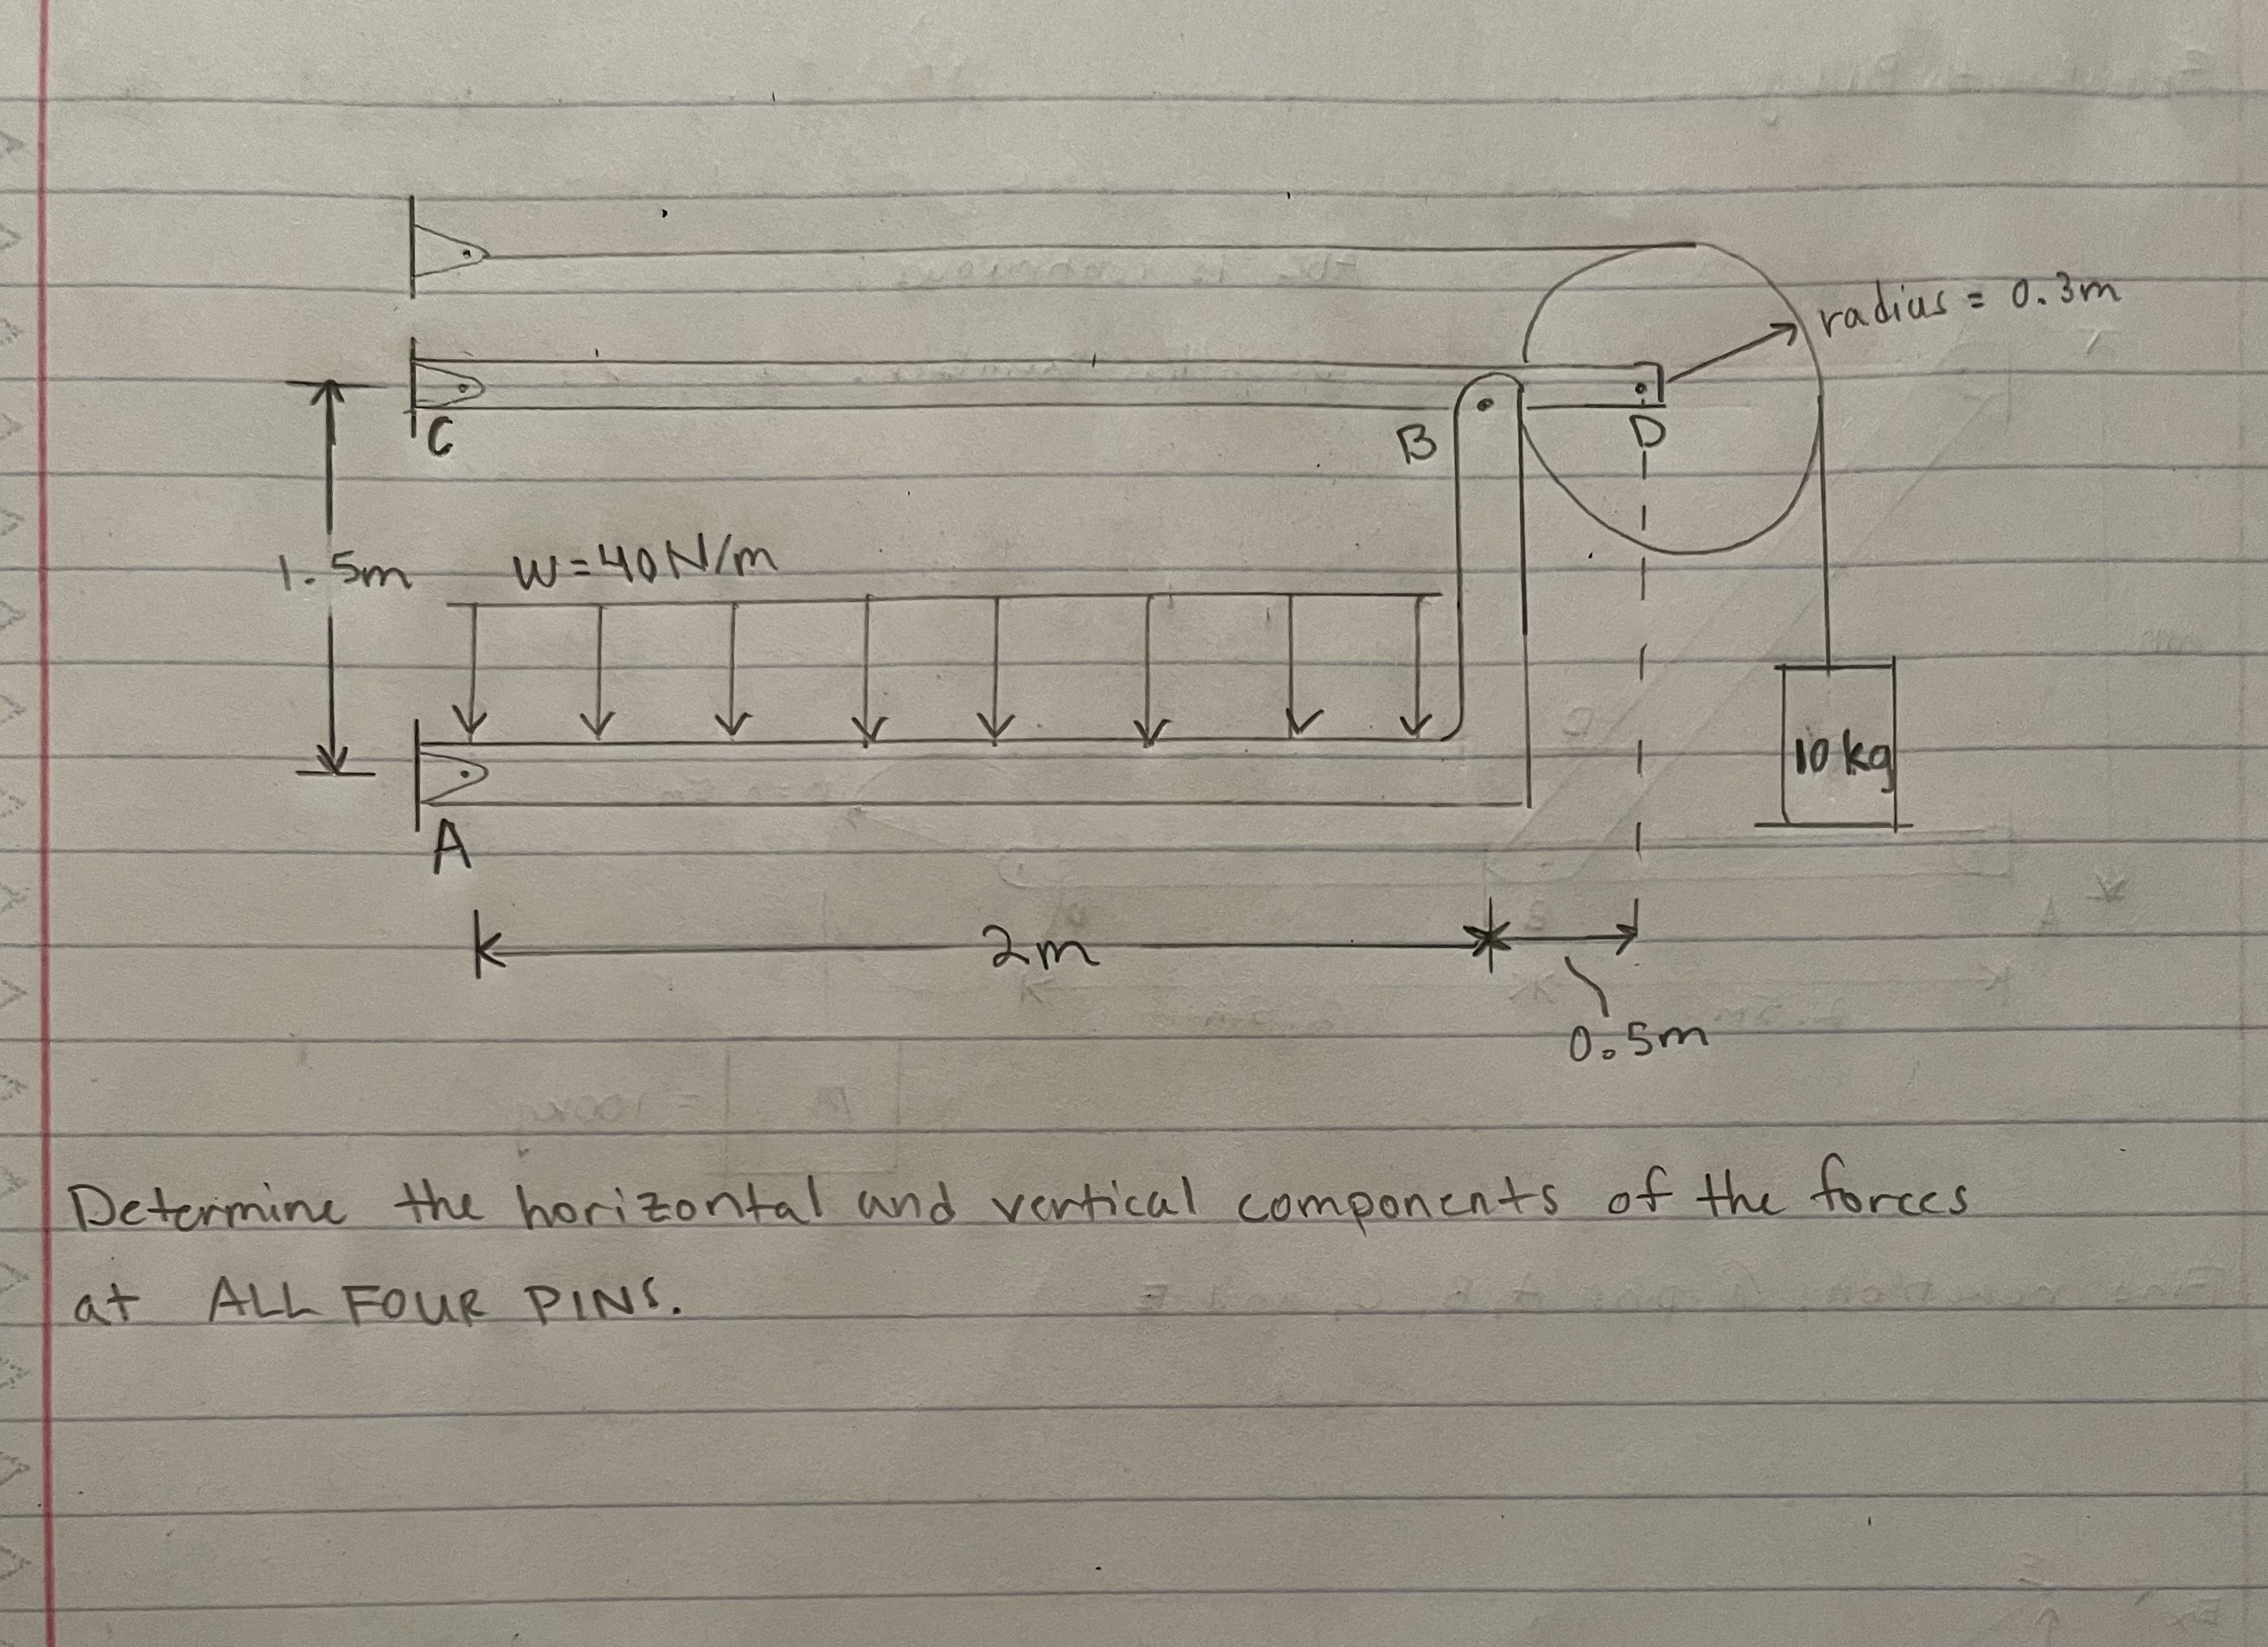 radius = 0.3m
C
B
D
1.5m
w=40N/m
10kg
A
2m
0.5m
Determine the horizontal and vertical components of the forces
at ALL FOUR PINS.